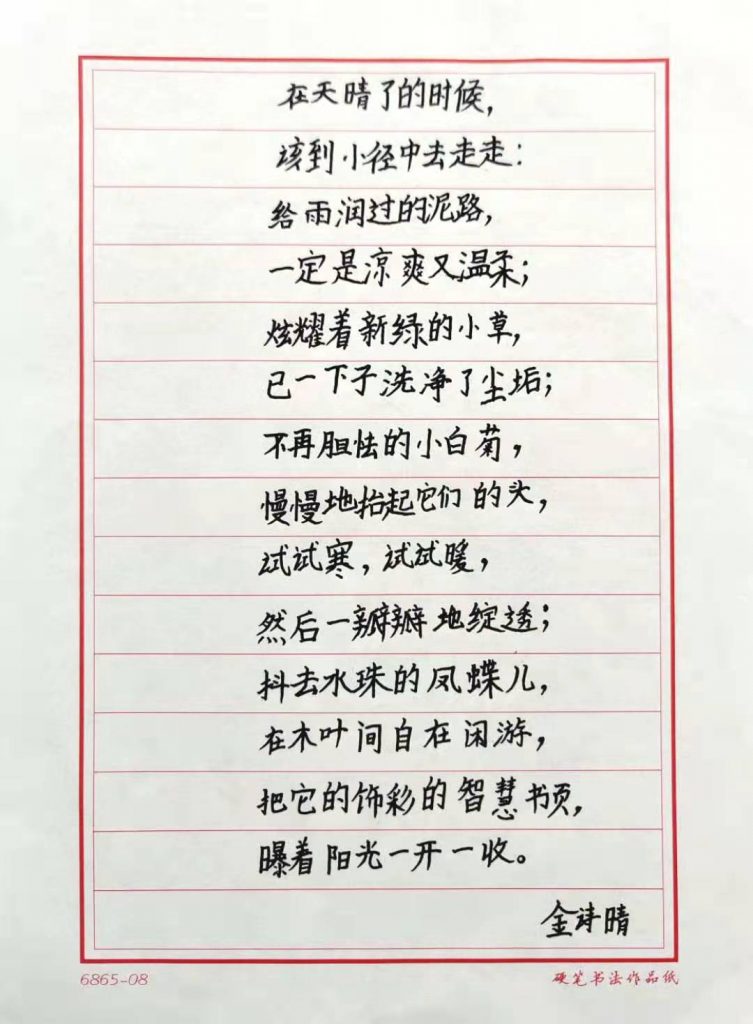 在天晴了的时候，
该到小径中去走走：
给雨润过的泥路，
一定是凉爽又温柔；
炫耀着新绿的小草，
已一下子洗净了尘垢；
不再胆怯的小白菊，
慢慢地抬起它们的头，
试试寒，试试暖，
然后一瓣瓣地绽透；
抖去水珠的凤蝶儿，
在木叶间自在闲游，
把它的饰彩的智慧书页，
曝着阳光一开一收。
金诗晴
6865-08
硬笔书法作品纸